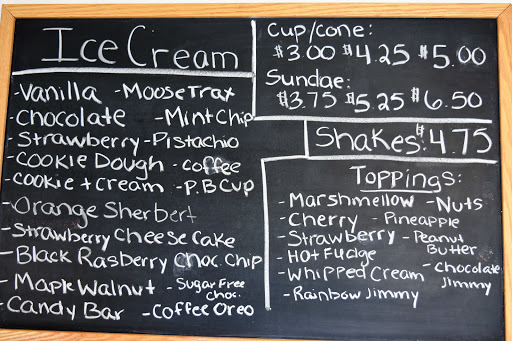 Ice Cream
-Vanilla -Moose Trax
-Chocolate -Mint Chip
-Strawberry -Pistachio
-Cookie Dough -Coffee
-Cookie + Cream -P.B Cup
-Orange Sherbert
-Strawberry Cheese Cake
-Black Rasberry Choc. Chip
-Maple Walnut -Sugar Free Choc.
-Candy Bar -Coffee Oreo
Cup/cone:
$3.00 $4.25 $5.00
Sundae:
$3.75 $5.25 $6.50
Shakes: $4.75
Toppings:
-Marshmellow -Nuts
-Cherry -Pineapple
-Strawberry -Peanut Butter
-Hot Fudge
-Whipped Cream -Chocolate Jimmy
-Rainbow Jimmy